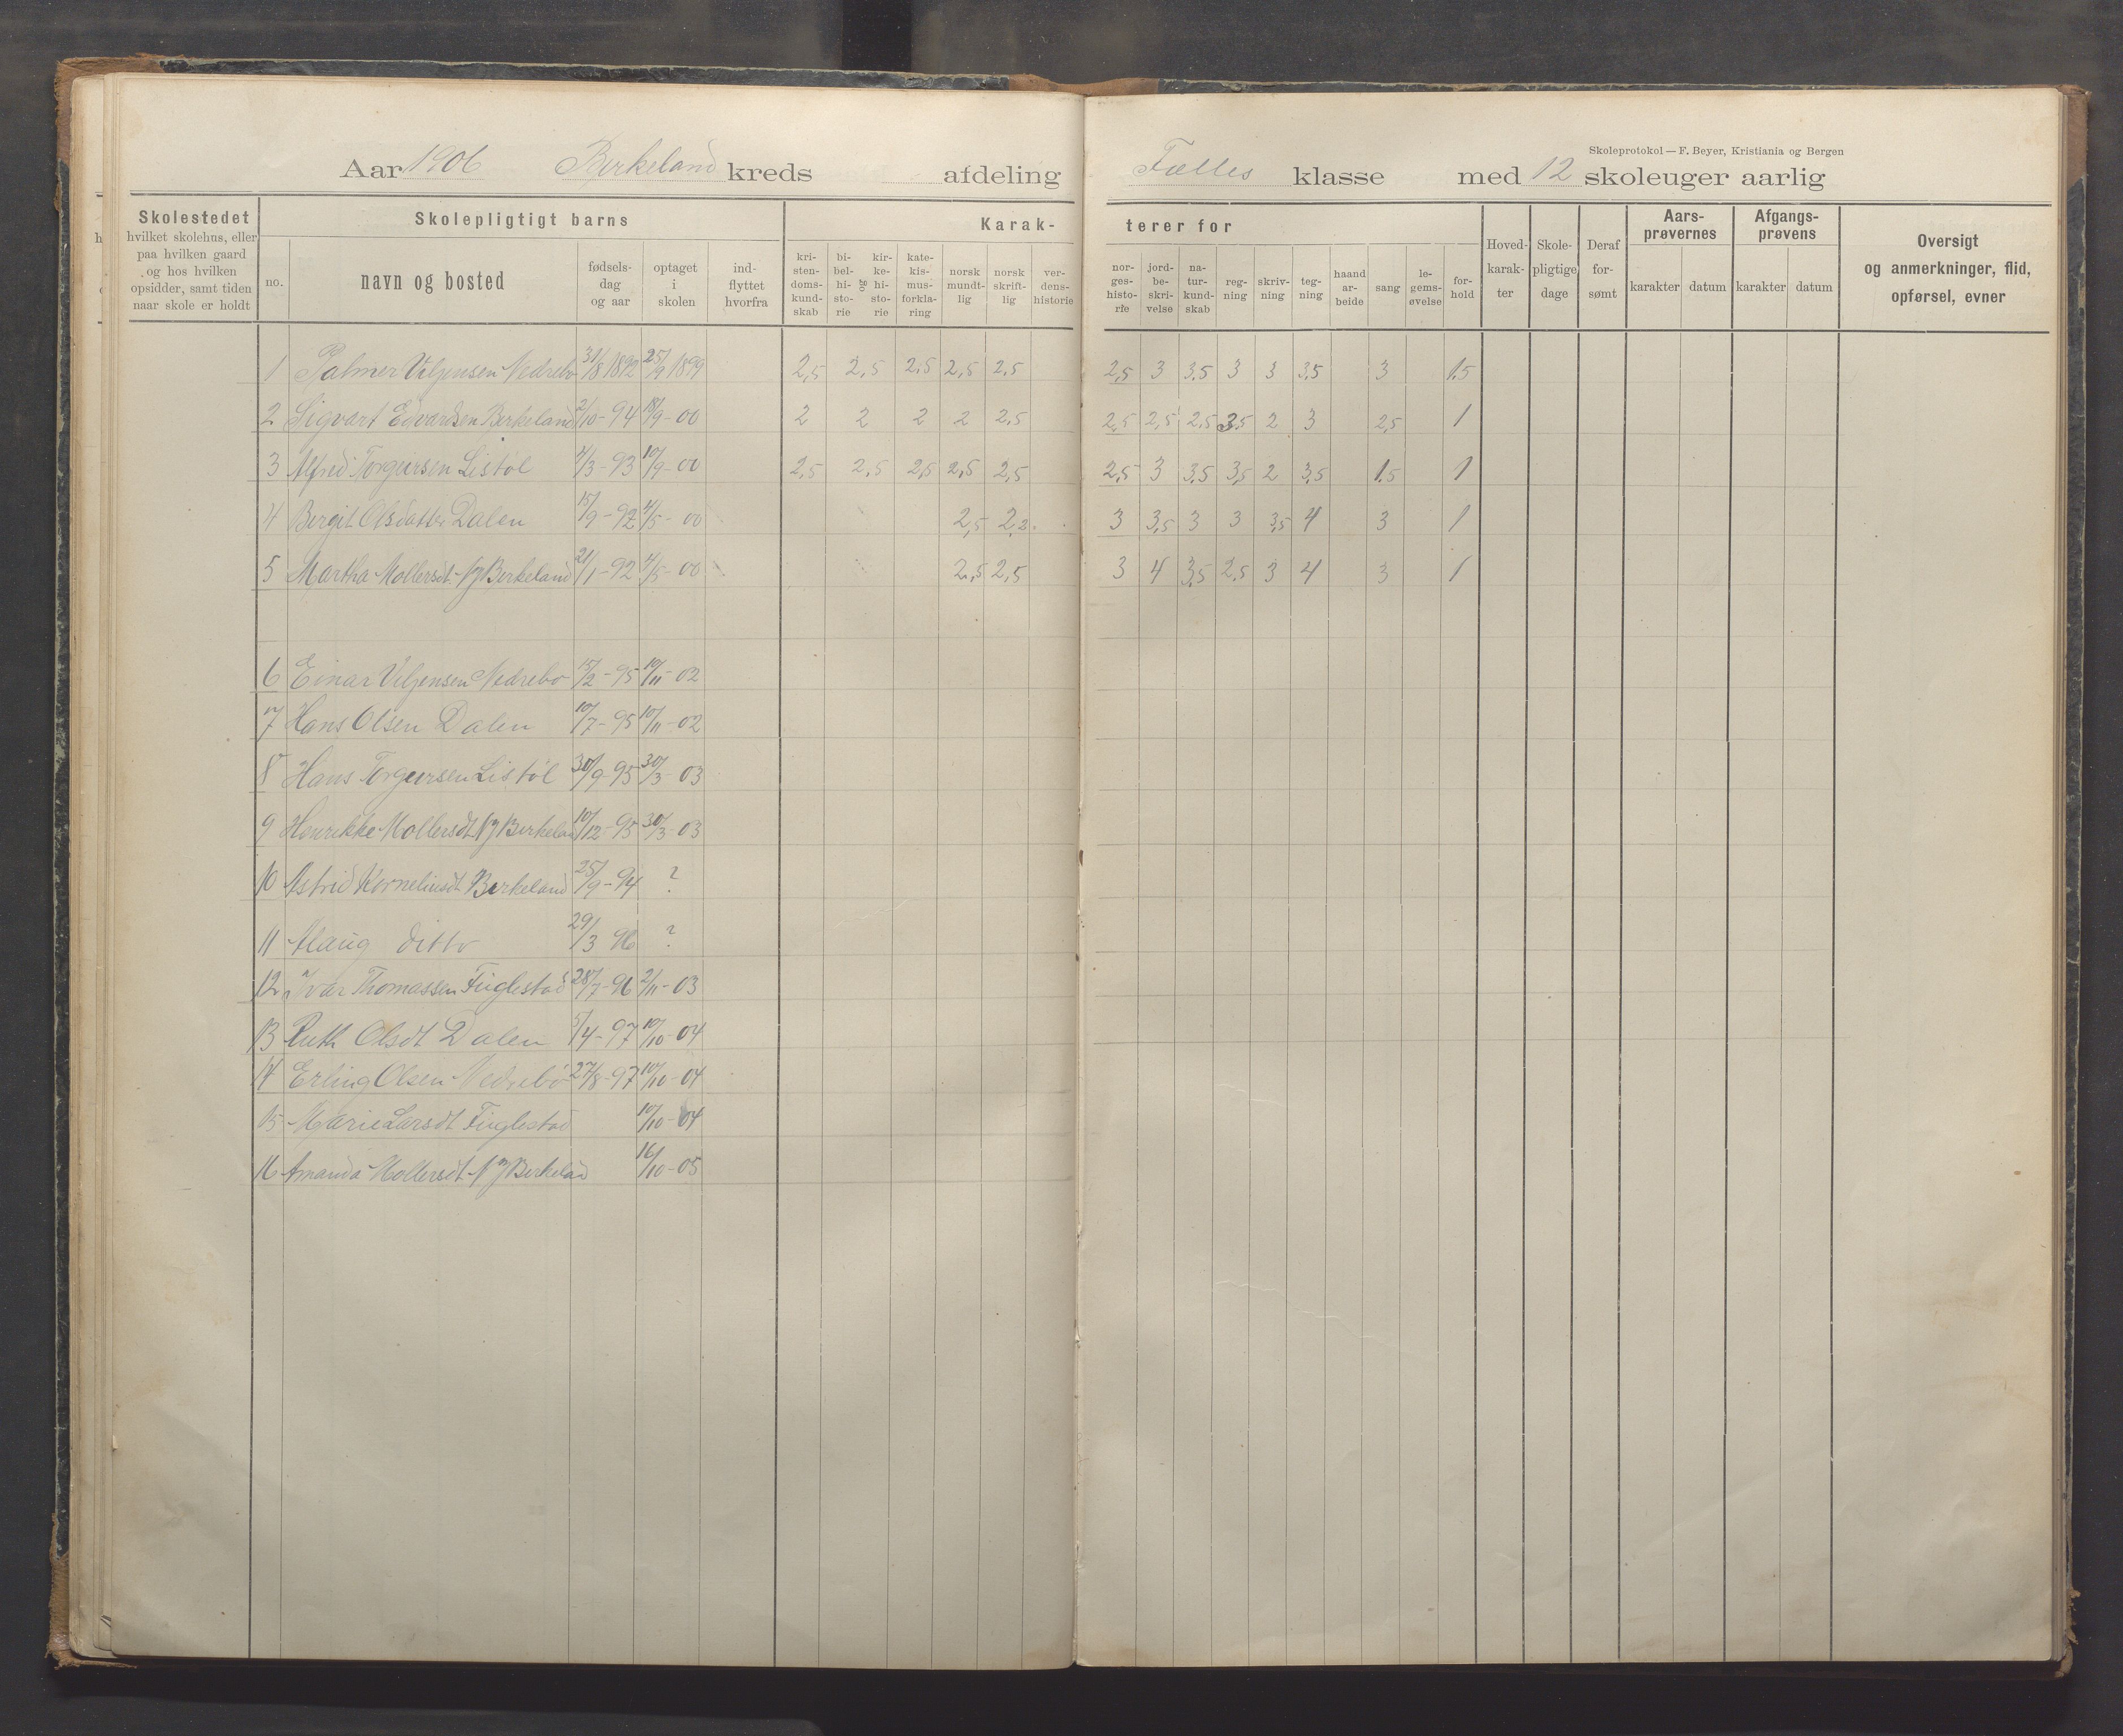 Skoleprotokol — F. Beyer, Kristiania og Bergen
Aar 1906 Birkeland kreds afdeling Fælles klasse med 12 skoleuger aarlig
Skolestedet hvilket skolehus, eller paa hvilken gaard og hos hvilken opsidder, samt tiden naar skole er holdt
Skolepligtigt barns
no. navn og bosted fødselsdag og aar optaget i skolen indflyttet hvorfra
Karakterer for
kristendomskundskab bibelhistorie og kirkehistorie katekismusforklaring norsk mundtlig norsk skriftlig verdenshistorie norgeshistorie jordbeskrivelse naturkundskab regning skrivning tegning haandarbeide sang legemsøvelse forhold
Hovedkarakter Skolepligtige dage Deraf forsømt
Aarsprøvernes karakter datum
Afgangsprøvens karakter datum
Oversigt og anmerkninger, flid, opførsel, evner
1 Palmer Viljensen Nedrebø 31/8 1892 25/9 1899 2,5 2,5 2,5 2,5 2,5 2,5 3 3,5 3 3 3,5 3 1,5
2 Sigvart Edvardsen Birkeland 2/10-94 18/9-00 2 2 2 2 2,5 2,5 2,5 2,5 3,5 2 3 2,5 1
3 Alfred Torgeirsen Listøl 4/3-93 10/9-00 2,5 2,5 2,5 2,5 2,5 2,5 3 3,5 3,5 2 3,5 1,5 1
4 Bergit Olsdatter Dalen 15/9-92 4/5-00 2,5 2,2 3 3,5 3 3 3,5 4 3 1
5 Martha Mollersdt. Birkeland 21/1-92 4/5-00 2,5 2,5 3 4 3,5 2,5 3 4 3 1
6 Einar Viljensen Nedrebø 15/2-95 10/11-02
7 Hans Olsen Dalen 10/7-95 10/11-02
8 Hans Torgeirsen Listøl 30/9-95 30/3-03
9 Henrikke Mollersdt Birkeland 10/12-95 30/3-03
10 Astrid Korneliusdt Birkeland 25/9-94 ?
11 Alaug ditto 29/3 96 ?
12 Ivar Thomassen Fuglestad 28/7-96 2/11-03
13 Ruth Olsdt Dalen 5/4-97 10/10-04
14 Erling Olsen Nedrebø 27/8-97 10/10-04
15 Marie Larsdt Fuglestad 10/10-04
16 Amanda Mollersdt Birkeland 16/10-05